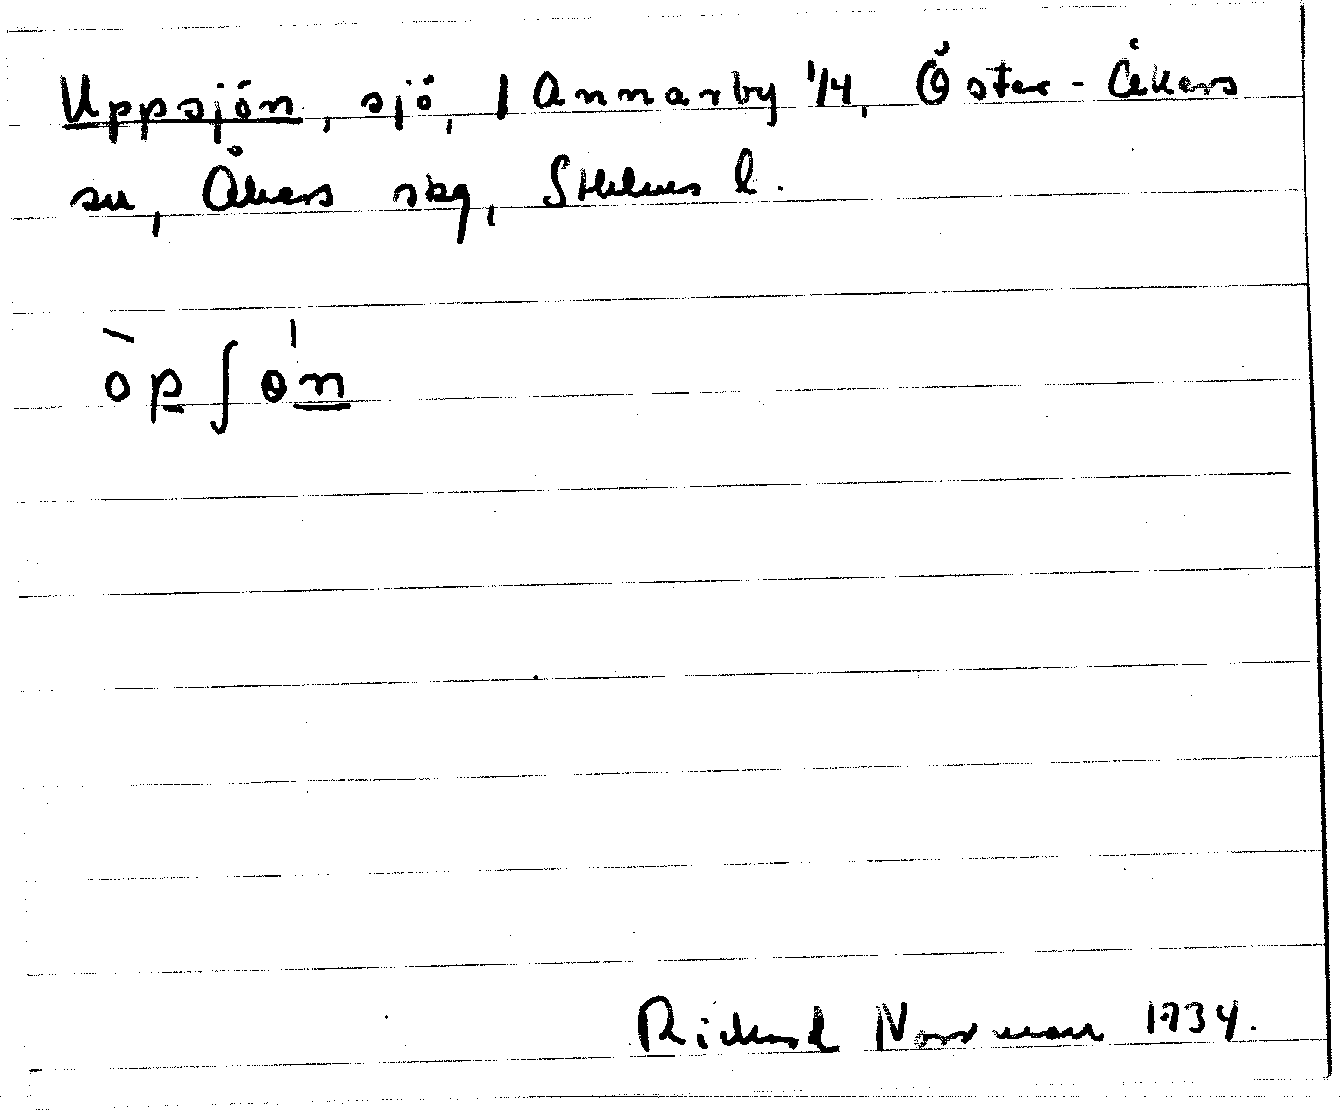 Uppsjön, sjö, / Annarby 1/4, Öster-Åkers
sn, Åkers skg, Sthlms l.
òpʃɵ́n
Rickard Norrman 1934.